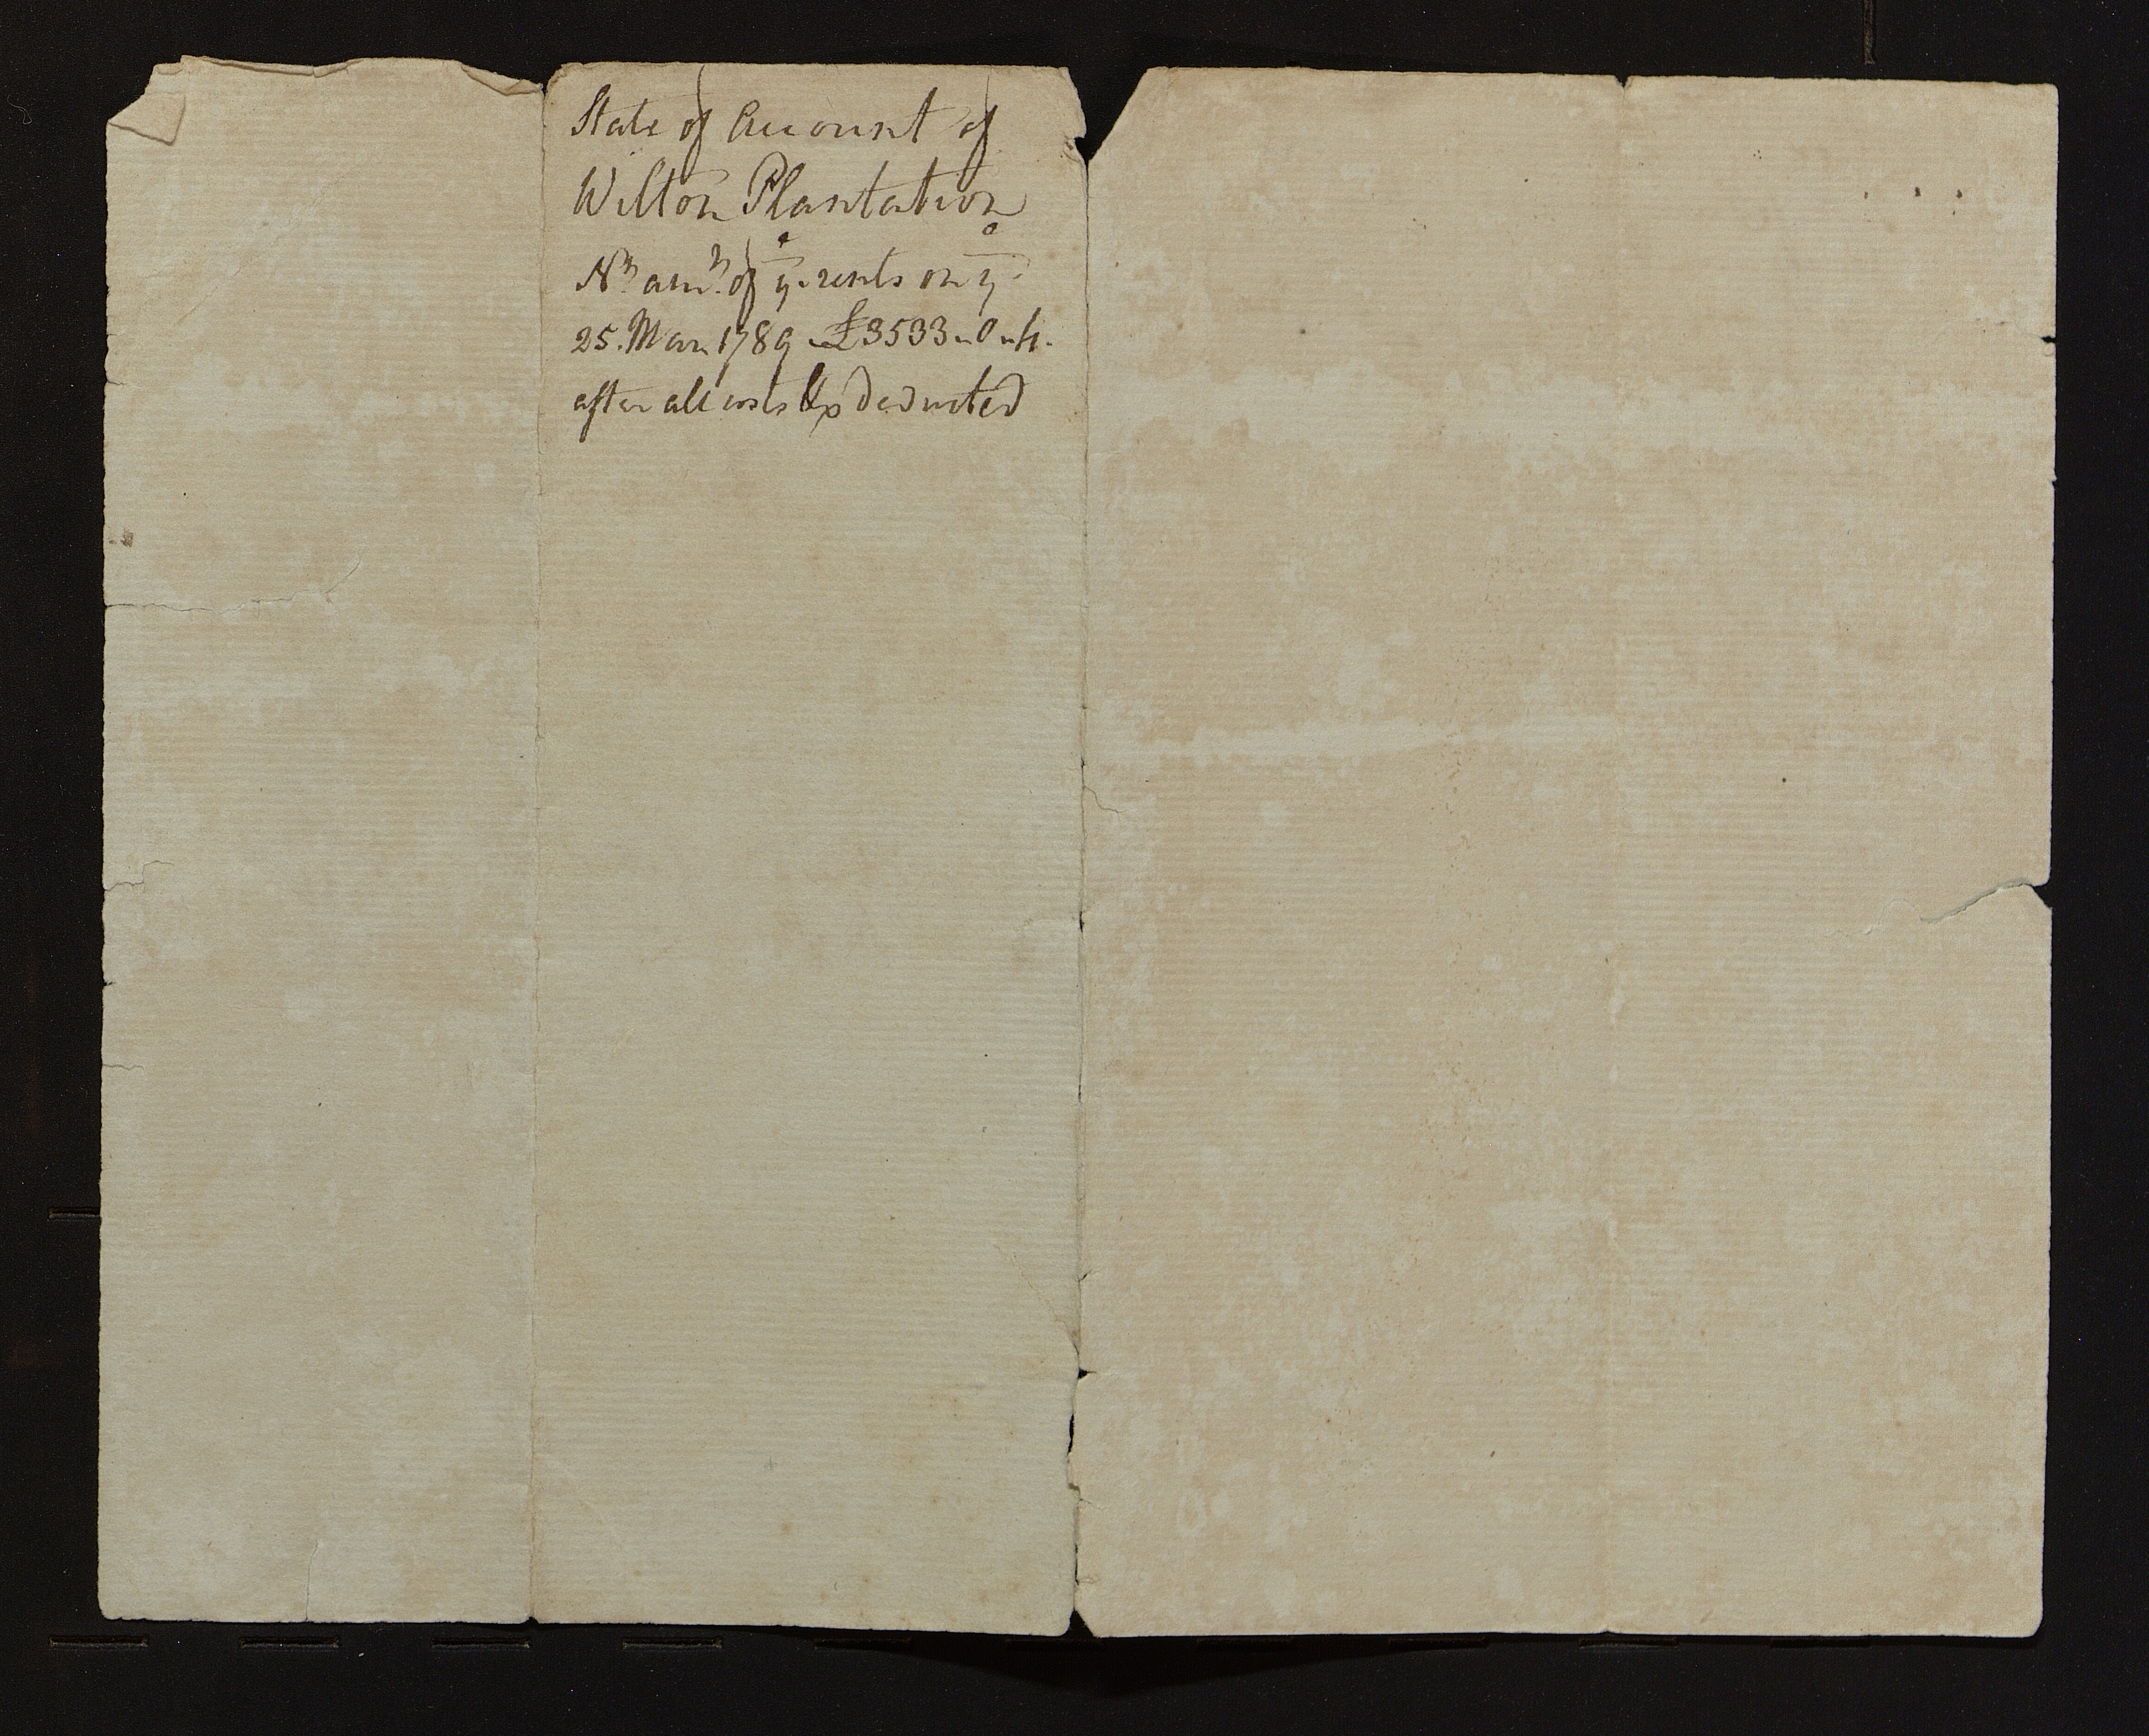 State of Account of
Wilton Plantation
amt. of ye. rents on ye.
25. Mar 1789 - £3533 " 0 " 4.
after all costs &c Deducted